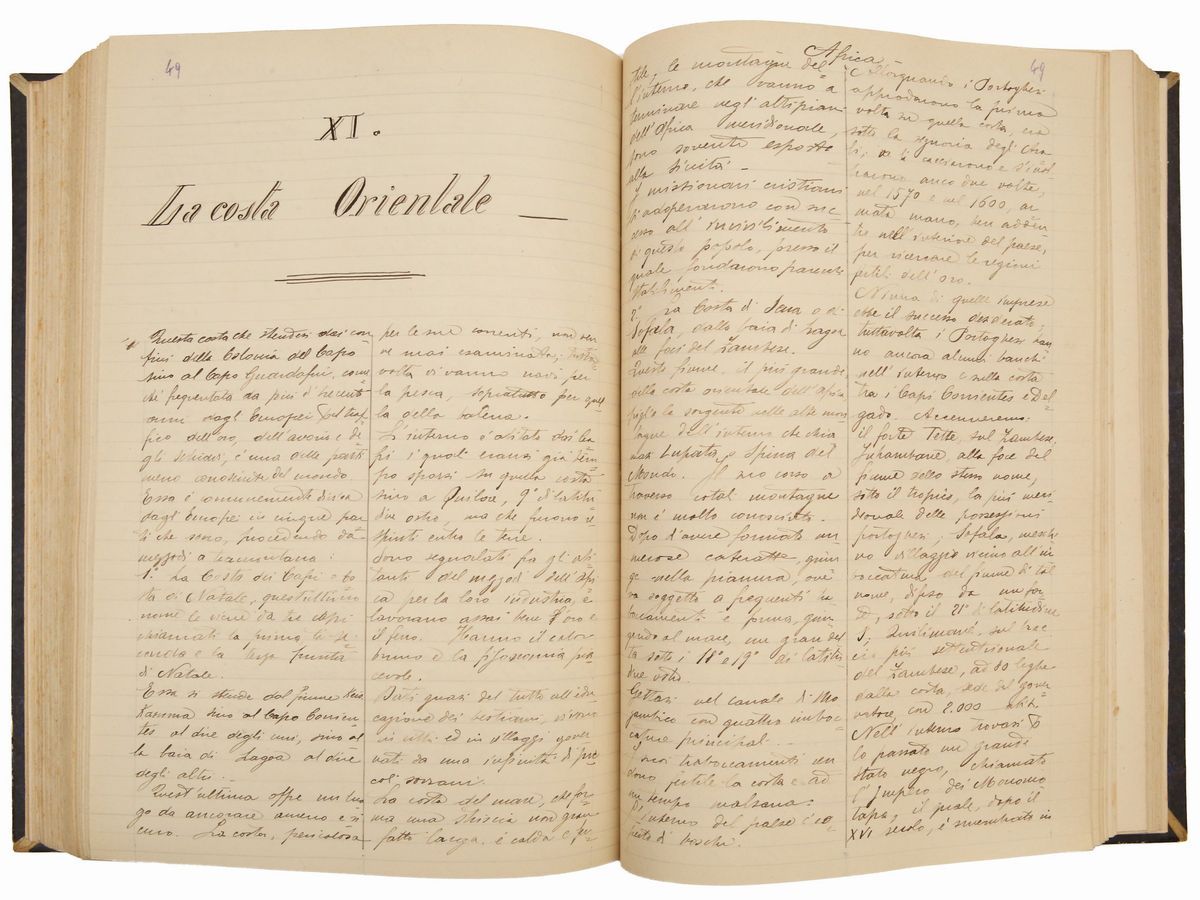 49
XI.
La costa Orientale
Questa costa che stendesi dai con
fini della Colonia del Capo
sino al Capo Guardafui, com
che frequentata da più d'
anni dagli Europei traf
fico dell'oro, dell'avorio e de
gli schiavi, è una delle parti
meno conosciute del mondo.
Essa è comunemente divisa
dagli Europei in cinque par
ti che sono, procedendo da
mezzodì a tramontana:
1. La Costa dei Capi e Co
sta di Natale, quest'ultimo
nome le viene da tre capi
chiamati la prima, la se
conda e la terza punta
di Natale.
Essa si stende dal fiume Keis
Kamma sino al Capo Corrien
tes al dire degli uni, sino al
la baia di Lagoa al dire
degli altri.
Quest'ultima offre un luo
go da ancorare ameno e si
curo. La costa, pericolosa
per le sue correnti, non ven
ne mai esaminata; tutta
volta vi vanno navi per
la pesca, sopratutto per quel
la della balena.
L'interno è abitato dai Ca
fri i quali eransi già tem
po sparsi su quella costa
sino a Quiloe, 9° di latitu
dine ostro, ma che furono re
spinti entro le terre.
Sono segnalati fra gli abi
tanti del mezzodì dell'Afri
ca per la loro industria, e
lavorano assai bene l'oro e
il ferro. Hanno il color
bruno e la fisonomia pia
cevole.
Dati quasi del tutto all'edu
cazione dei bestiami, vivono
in città ed in villaggi gover
nati da una infinità di pic
coli sovrani.
La costa del mare, che for
ma una striscia non gran
fatto larga, è calda e fer
Africa
49
tile, le montagne del
l'interno, che vanno a
terminare negli altipiani
dell'Africa meridionale,
sono sovente esposte
alla siccità.
I missionari cristiani
si adoperarono con suc
cesso all'incivilimento
di questo popolo, presso il
quale fondarono parecchi
stabilimenti.
2° La Costa di Sena o di
Sofala, dalla baia di Lagoa
alle foci del Zambese.
Questo fiume, il più grande
della costa orientale dell'Africa
piglia la sorgente nelle alte mon
tagne dell'interno che chia
masi Lupata, o Spina del
Mondo. Il suo corso a
traverso cotali montagne
non è molto conosciuto.
Dopo d'avere formate nu
merose cateratte, giun
ge nella pianura, ove
va soggetto a frequenti tra
boccamenti e forma, giun
gendo al mare, un gran del
ta sotto i 18° e 19° di latitu
dine ostro.
Gettasi nel canale di Mo
zambico con quattro imboc
cature principali.
I suoi traboccamenti ren
dono fertile la costa e ad
un tempo malsana:
L'interno del paese è co
perto di boschi.
Allorquando i Portoghesi
approdarono la prima
volta su quella costa, era
sotto la signoria degli Ara
bi; ve li cacciarono e s'inol
trarono anco due volte,
nel 1570 e nel 1600, ar
mata mano, ben adden
tro nell'interiore del paese,
per ricercare le regioni
fertili dell'oro.
Niuna di quelle imprese
ebbe il successo desiderato;
tuttavolta i Portoghesi han
no ancora alcuni banchi
nell'interno e sulla costa
tra i Capi Corrientes e Del
gado. Accenneremo:
il forte Tette, sul Zambese,
Inhambane, alla foce del
fiume dello stesso nome,
sotto il tropico, la più meri
dionale delle possessioni
portoghesi; Sofala, meschi
no villaggio vicino all'im
boccatura del fiume di tal
nome, difeso da un for
te, sotto il 21° di latitudine
S; Quilimane, sul brac
cio più settentrionale
del Zambese, ad 80 leghe
dalla costa, sede del gover
natore, con 2.000 abit.
Nell'interno trovasi
lo passato un grande
stato negro, chiamato
l'Impero dei Monomo
tapa, il quale, dopo il
XVI secolo, è smembrato in